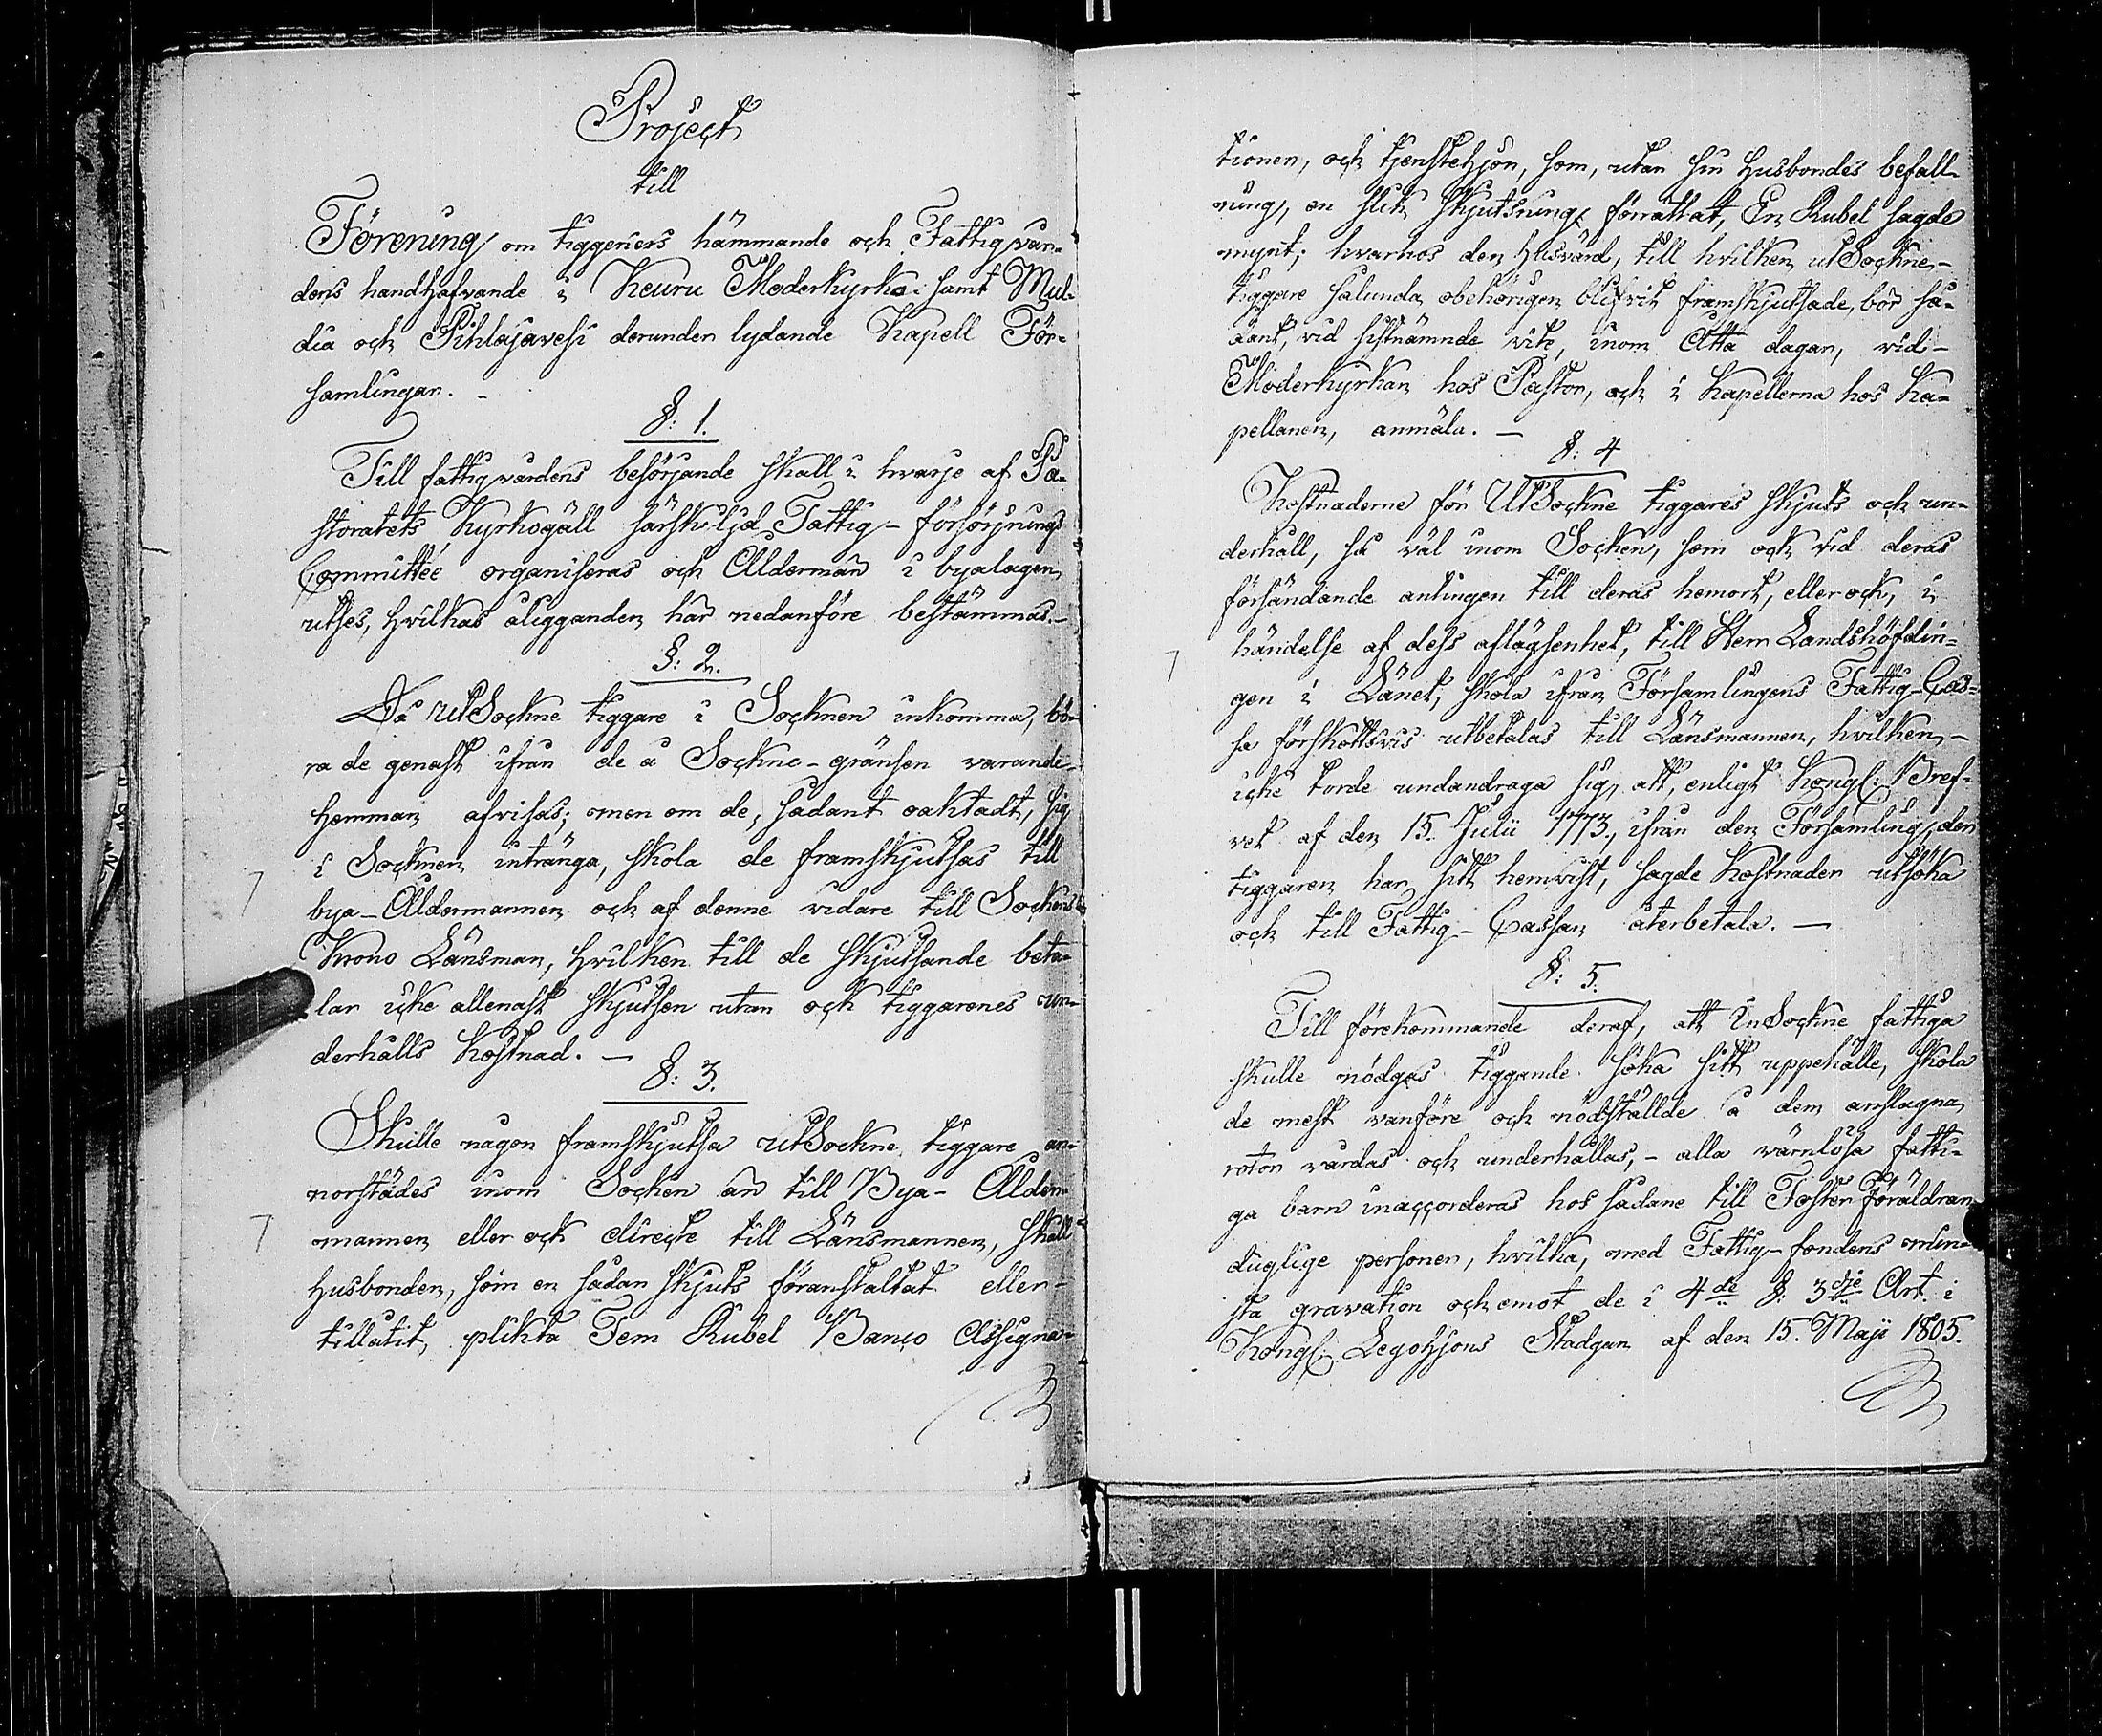 Project
till
Förening om tiggeriers hämmande och Fattigvår-
dens handhafvande i Keuru Moderkyrko: samt Mul-
dia och Pihlajavesi derunder lydande Kapell För-
samlingar. -
§: 1.
Till fattigvårdens besörjande skall i hvarje af Pa-
storatets Kyrkogäll särskild Fattig-försörjnings
Committée organiseras och Ålderman i byalagen
utses, hvilkas åligganden här nedanföre bestämmas. -
§: 2.
Då utSockne tiggare i Socknen inkomma, bö-
ra de genast ifrån de å Sockne-gränsen varande
hemman afvisas; men om de, sådant oaktadt, sig
i Socknen intränga, skola de framskjutsas till
bya-Åldermannen och af denne vidare till Sockens
Krono Länsman, hvilken till de skjutsande beta-
lar icke allenast skjutsen utan och tiggarenes un-
derhålls kostnad. -
§: 3.
Skulle någon framskjutsa utSockne tiggare an-
norstädes inom Socken än till Bya-Ålder-
mannen eller och directe till Länsmannen, skall
husbonden, som en sådan skjuts föranstaltat eller
tillåtit, plikta Fem Rubel Banco Assigna-
tioner, och tjenstehjon, som, utan sin husbondes befall-
ning, en slik skjutsning förrättat, En Rubel sagde
mynt; hvarhos den husvärd, till hvilken utSockne-
tiggare sålunda obehörigen blifvit framskjutsade, bör så-
dant, vid sistnämnde vite, inom Åtta dagar, vid
Moderkyrkan hos Pastor, och i Kapellerna hos Ka-
pellanen, anmäla. -
§: 4
Kostnaderne för UtSockne tiggares skjuts och un-
derhåll, så väl inom Socken, som ock vid deras
försändande antingen till deras hemort, eller och, i
händelse af dess aflägsenhet, till Herr Landshöfdin-
gen i Länet, skola ifrån Församlingens Fattig-Cas-
sa förskottsvis utbetalas till Länsmannen, hvilken
icke torde undandraga sig, att, enligt Kongl: Bref-
vet af den 15. Julii 1773., ifrån den Församling, der
tiggaren har sitt hemvist, sagde kostnader utsöka
och till Fattig-Cassan återbetala. -
§: 5.
Till förekommande deraf, att inSockne fattiga
skulle nödgas tiggande söka sitt uppehälle, skola
de mest vanföre och nödställde å dem anslagna
rotor vårdas och underhållas, - alla värnlösa fatti-
ga barn inaccorderas hos sådane till Foster Föräldrar
duglige personer, hvilka, med Fattig-fondens min-
sta gravation och emot de i 4de §: 3dje Art. i
Kongl: Legohjons Stadgan af den 15. Maji 1805.